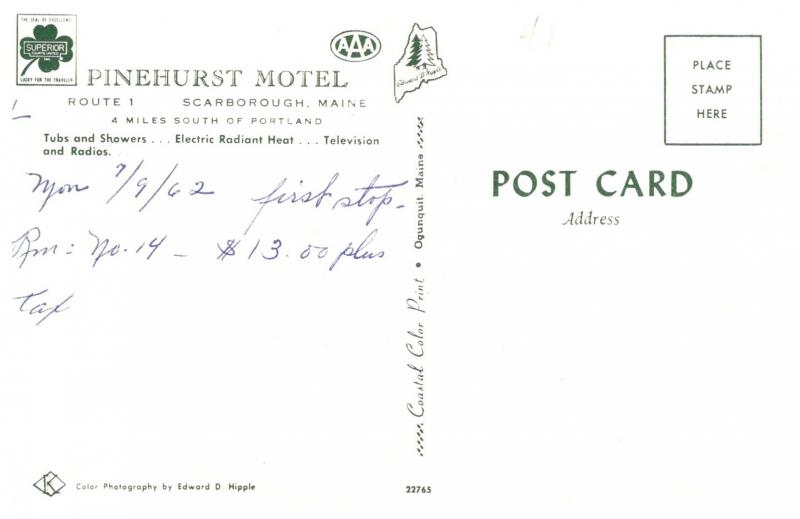 THE SEAL OF EXCELLENCE
SUPERIOR
COURTS UNITED
INC.
LUCKY FOR THE TRAVELER
AAA
Edward D. Hipple
PINEHURST MOTEL
ROUTE 1 SCARBOROUGH, MAINE
4 MILES SOUTH OF PORTLAND
Tubs and Showers . . . Electric Radiant Heat . . . Television
and Radios.
Mon 7/9/62 first stop-
Rm: No. 14 - $13.00 plus
tax
Color Photography by Edward D. Hipple
22765
Coastal Color Print • Ogunquit, Maine
41
PLACE
STAMP
HERE
POST CARD
Address
K